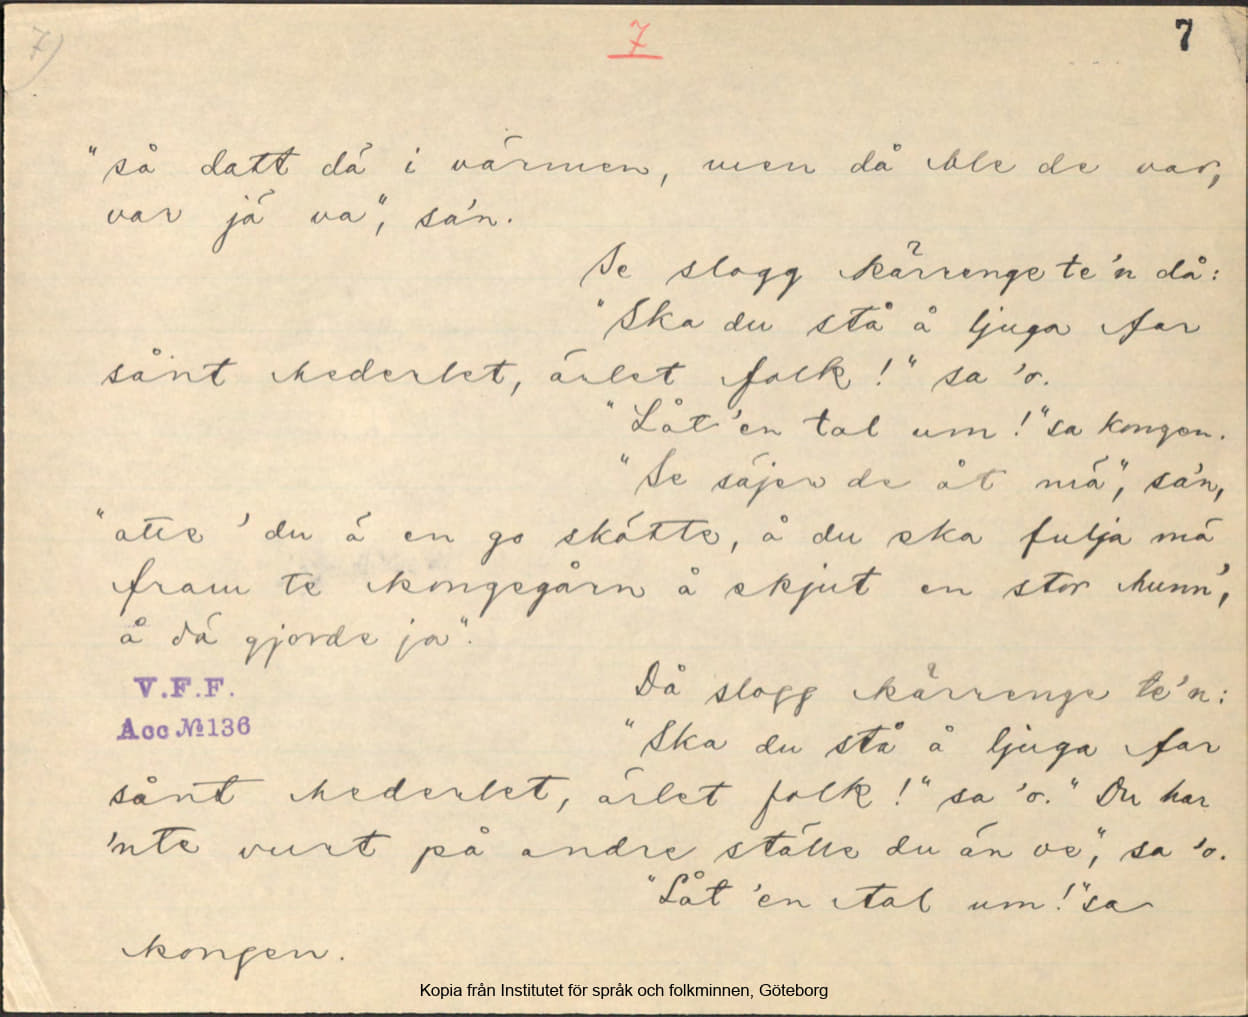 7) 7 7
"så datt dä i värmen, men då ble de var,
var jä va", sa'n.
Se slogg kärrenge te'n då:
"Ska du stå å ljuga far
sånt hederlet, ärlet folk!" sa 'o.
"Låt 'en tal um!" sa kongen.
"Se säjer de åt mä", sa'n,
"atte 'du ä en go skätte, å du ska fulja mä
fram te kongsgårn å skjut en stor hunn',
å dä gjorde ja".
V.F.F.
Acc № 136
Då slogg kärrenge te'n:
"Ska du stå å ljuga far
sånt hederlet, ärlet folk!" sa 'o. "Du har
'nte vurt på andre ställe du än ve", sa 'o.
"Låt 'en tal um!" sa
kongen.
Kopia från Institutet för språk och folkminnen, Göteborg